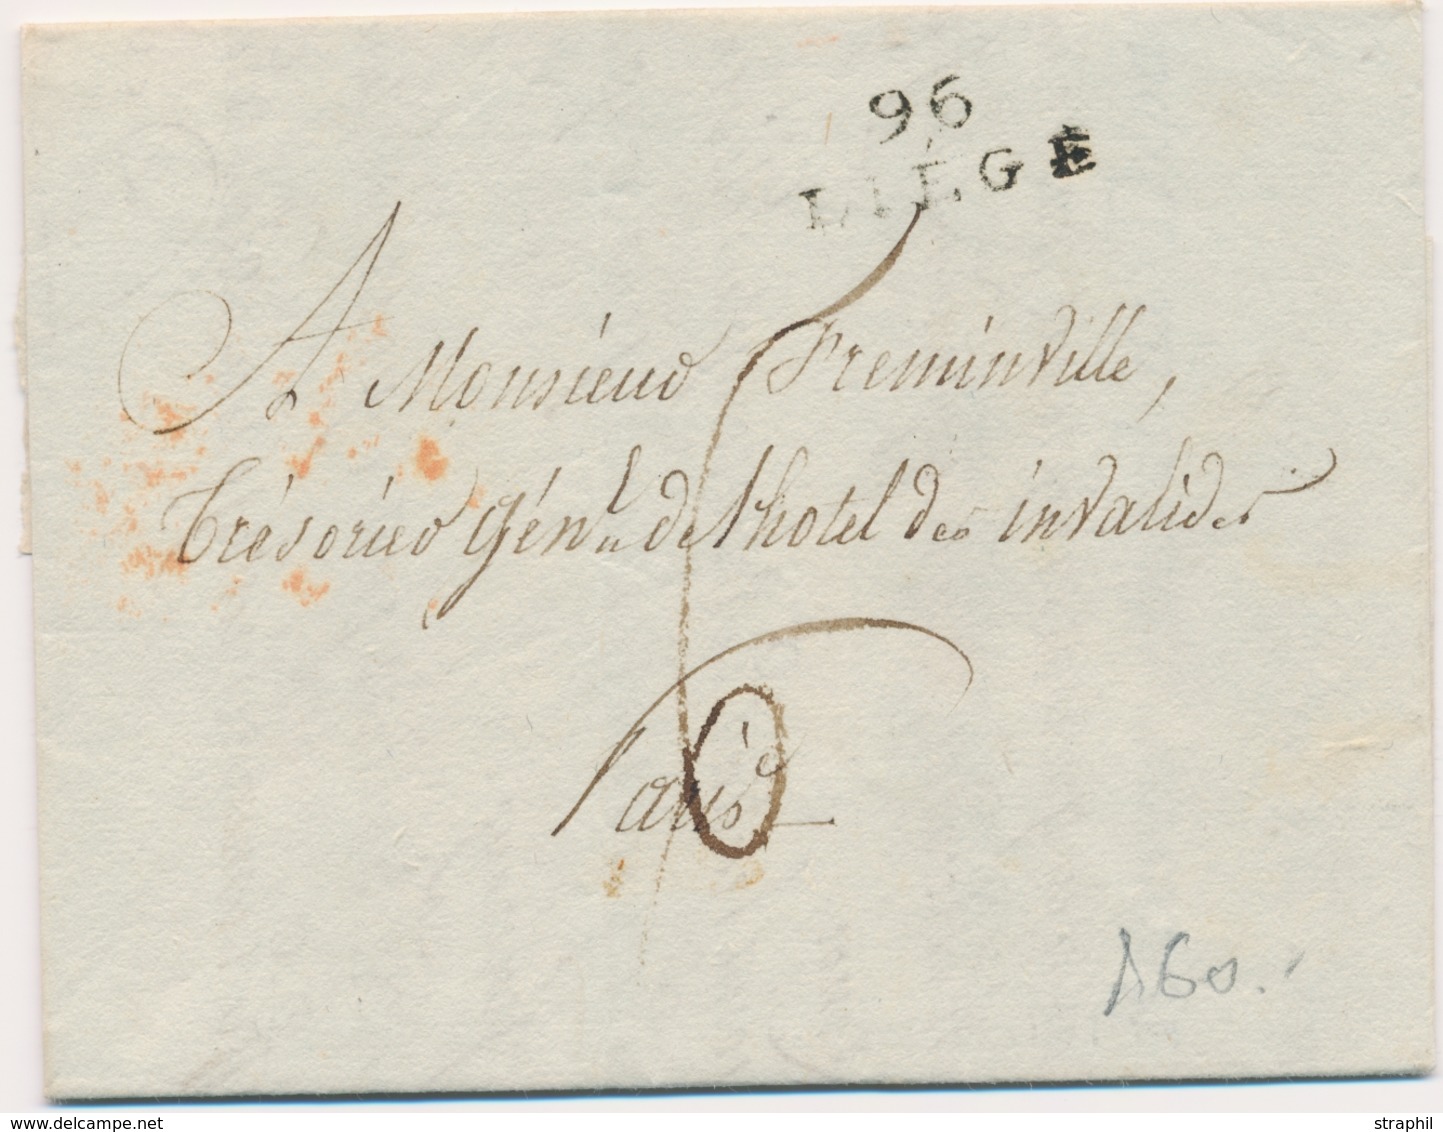 96
LIÉGE
A Monsieur Freminville,
Trésorier Génl. de l'hotel des invalides
Paris
6
www.delcampe.net
straphil